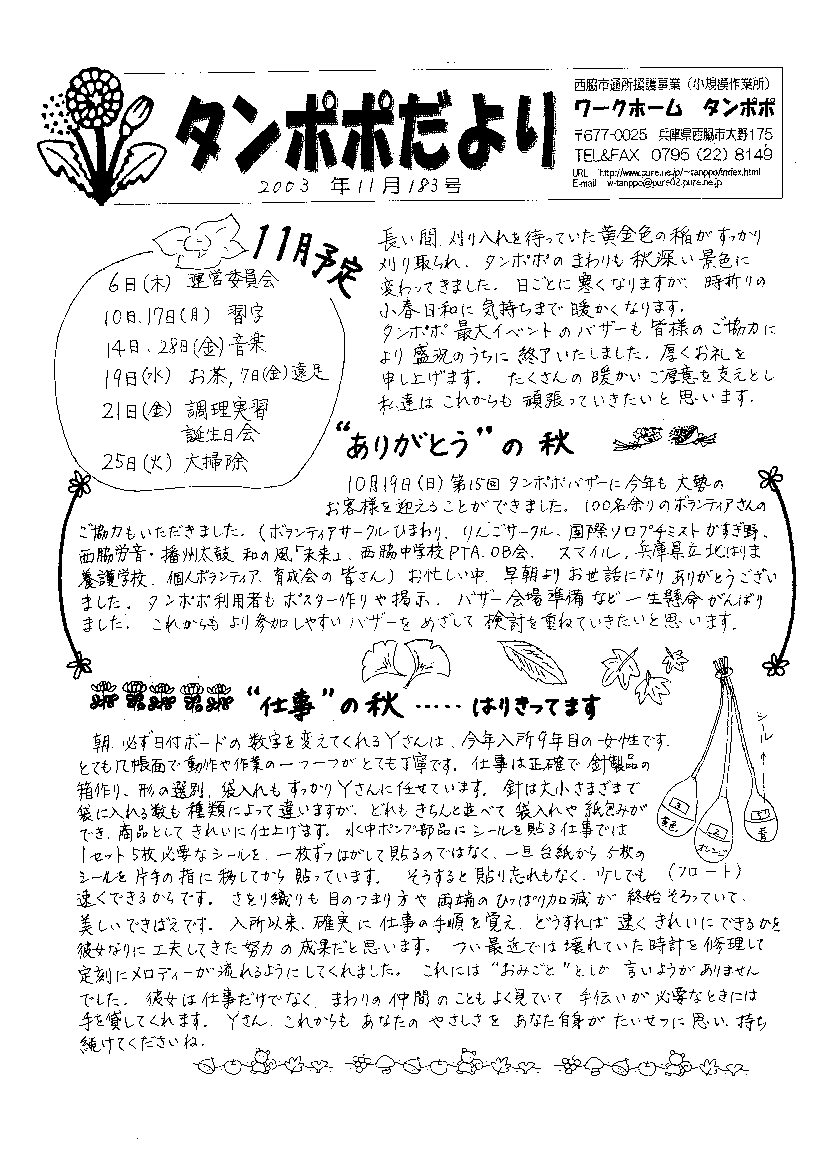 タンポポだより
2003 年11月183号
西脇市通所援護事業（小規模作業所）
ワークホーム タンポポ
〒677-0025 兵庫県西脇市大野175
TEL&FAX 0795（22）8149
URL http://www.pure.ne.jp/~tanppo/index.html
E-mail w-tanppo@pure02.pure.ne.jp
11月予定
6日(木) 運営委員会
10日、17日(月) 習字
14日、28日(金) 音楽
19日(水) お茶, 7日(金)遠足
21日(金) 調理実習
誕生日会
25日(火) 大掃除
長い間、刈り入れを待っていた黄金色の稲がすっかり
刈り取られ、タンポポのまわりも秋深い景色に
変わってきました。日ごとに寒くなりますが、時折りの
小春日和に気持ちまで暖かくなります。
タンポポ最大イベントのバザーも皆様のご協力に
より盛況のうちに終了いたしました。厚くお礼を
申し上げます。 たくさんの暖かいご厚意を支えとし
私達はこれからも頑張っていきたいと思います。
“ありがとう”の秋
10月19日(日)第15回タンポポバザーに今年も大勢の
お客様を迎えることができました。100名余りのボランティアさんの
ご協力もいただきました。(ボランティアサークルひまわり、りんごサークル、国際ソロプチミストかすが野、
西脇労音・播州太鼓 和の風「未来」、西脇中学校PTA、OB会、 スマイル、兵庫県立北はりま
養護学校、個人ボランティア、育成会の皆さん) お忙しい中、早朝よりお世話になりありがとうござい
ました。タンポポ利用者もポスター作りや掲示、バザー会場準備など一生懸命がんばり
ました。これからもより参加しやすいバザーをめざして検討を重ねていきたいと思います。
“仕事”の秋 ‥‥‥ はりきってます
朝、必ず日付ボードの数字を変えてくれるYさんは、今年入所9年目の女性です。
とても几帳面で動作や作業の一つ一つがとても丁寧です。仕事は正確で針製品の
箱作り、形の選別、袋入れもすっかりYさんに任せています。針は大小さまざまで
袋に入れる数も種類によって違いますが、どれもきちんと並べて袋入れや紙包みが
でき、商品としてきれいに仕上げます。水中ポンプ部品にシールを貼る仕事では
1セット5枚必要なシールを、一枚ずつはがして貼るのではなく、一旦台紙から5枚の
シールを片手の指に移してから貼っています。 そうすると貼り忘れもなく、少しでも
速くできるからです。さをり織りも目のつまり方や両端のひっぱり加減が終始そろっていて、
美しいできばえです。入所以来、確実に仕事の手順を覚え、どうすれば速くきれいにできるかを
彼女なりに工夫してきた努力の成果だと思います。 つい最近では壊れていた時計を修理して
定刻にメロディーが流れるようにしてくれました。これには“おみごと”としか言いようがありません
でした。彼女は仕事だけでなく、まわりの仲間のこともよく見ていて手伝いが必要なときには
手を貸してくれます。Yさん、これからもあなたのやさしさをあなた自身がたいせつに思い、持ち
続けてくださいね。
シール
黄色
オレンジ
5
青
(フロート)